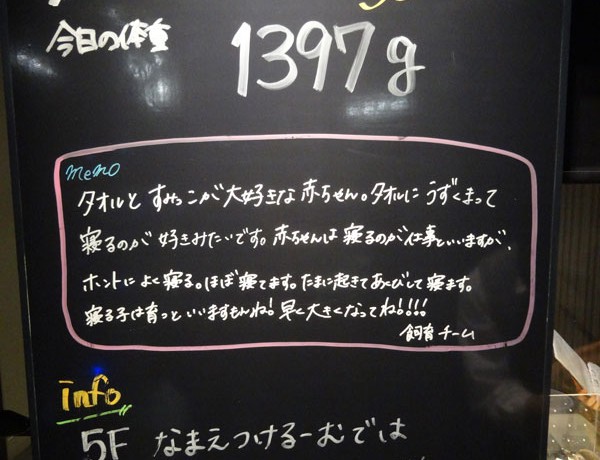 今日の体重
1397g
memo
タオルと すみっこが大好きな赤ちゃん。タオルに うずくまって
寝るのが 好きみたいです。赤ちゃんは 寝るのが仕事といいますが、
ホントに よく寝る。ほぼ 寝てます。たまに起きて あくびして 寝ます。
寝る子は育つ といいますもんね! 早く大きくなってね!!!!
飼育チーム
info
5F なまえつけるーむでは